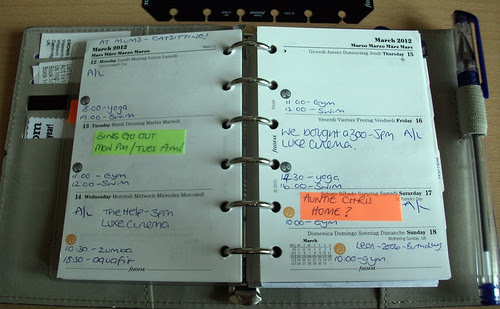 AT MUMS - CATSITTING!
March 2012
Mars März Marzo Marzo
12 Monday Lundi Montag Lunes Lunedì
A/L
18:00 - yoga
19:00 - Swim
13 Tuesday Mardi Dienstag Martes Martedì
BINS GO OUT
MON PM/TUES AM!
11:00 - Gym
12:00 - Swim
14 Wednesday Mercredi Mittwoch Miércoles Mercoledì
A/L The Help - 3pm
Luxe Cinema
10:30 - Zumba
18:30 - aquafit
filofax
March 2012
Marzo Marzo März Mars
Giovedì Jueves Donnerstag Jeudi Thursday 15
11:00 - Gym
12:00 - Swim
Venerdì Viernes Freitag Vendredi Friday 16
We bought a zoo - 3pm A/L
Luxe Cinema.
14:30 - yoga
16:00 - Swim
Sabato Sábado Samstag Samedi Saturday 17
AUNTIE CHRIS
HOME?
A/L
10:00 - Gym
Domenica Domingo Sonntag Dimanche Sunday 18
Mothering Sunday, UK
March
Leon - 2006 - Birthday
10:00 - gym.
filofax